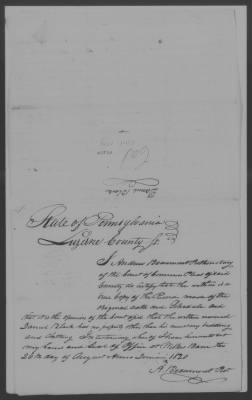 Daniel Black
State of Pennsylvania
Luzerne County Ss.
I Andrew Beaumont Prothonotary
of the Court of Common Pleas of said
County do certify that the within is a
true Copy of the made of the
original oath and Schedule and
that it is the opinion of the Court that the within named
Daniel Black has no property other than his necessary bedding
and Clothing In testimony whereof I have hereunto set
my hand and Seal of Office at Wilkes Barre the
26th day of August Anno Domini 1820
A. Beaumont Pro